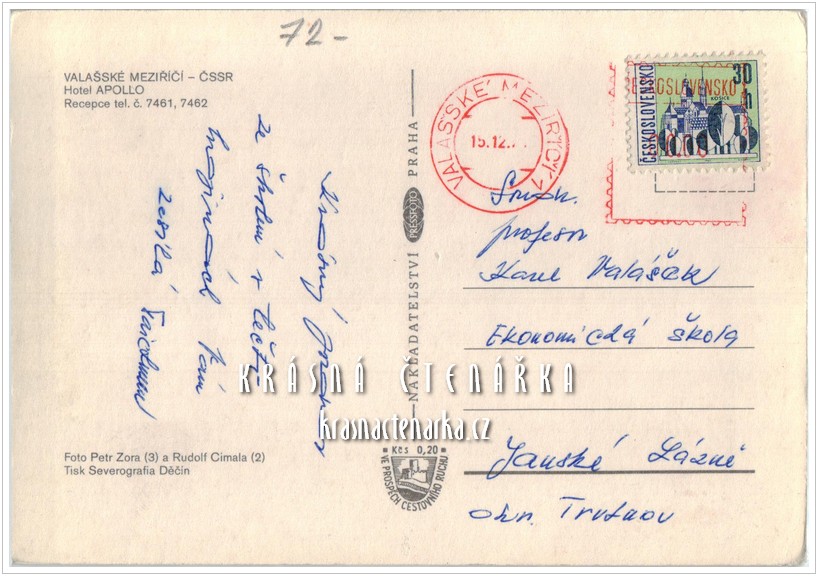 72-
VALAŠSKÉ MEZIŘÍČÍ – ČSSR
Hotel APOLLO
Recepce tel. č. 7461, 7462
VALAŠSKÉ MEZIŘÍČÍ 1
15.12.
ČESKOSLOVENSKO
ČESKOSLOVENSKO
KOŠICE
30 h
Krásný pozdrav
ze školení v
Vám
zasílá
NAKLADATELSTVÍ PRESSFOTO PRAHA
Soudr.
profesor
Karel Valášek
Ekonomická škola
Janské Lázně
okr. Trutnov
KRÁSNÁ ČTENÁŘKA
krasnactenarka.cz
Foto Petr Zora (3) a Rudolf Cimala (2)
Tisk Severografia Děčín
Kčs 0,20
VE PROSPĚCH CESTOVNÍHO RUCHU